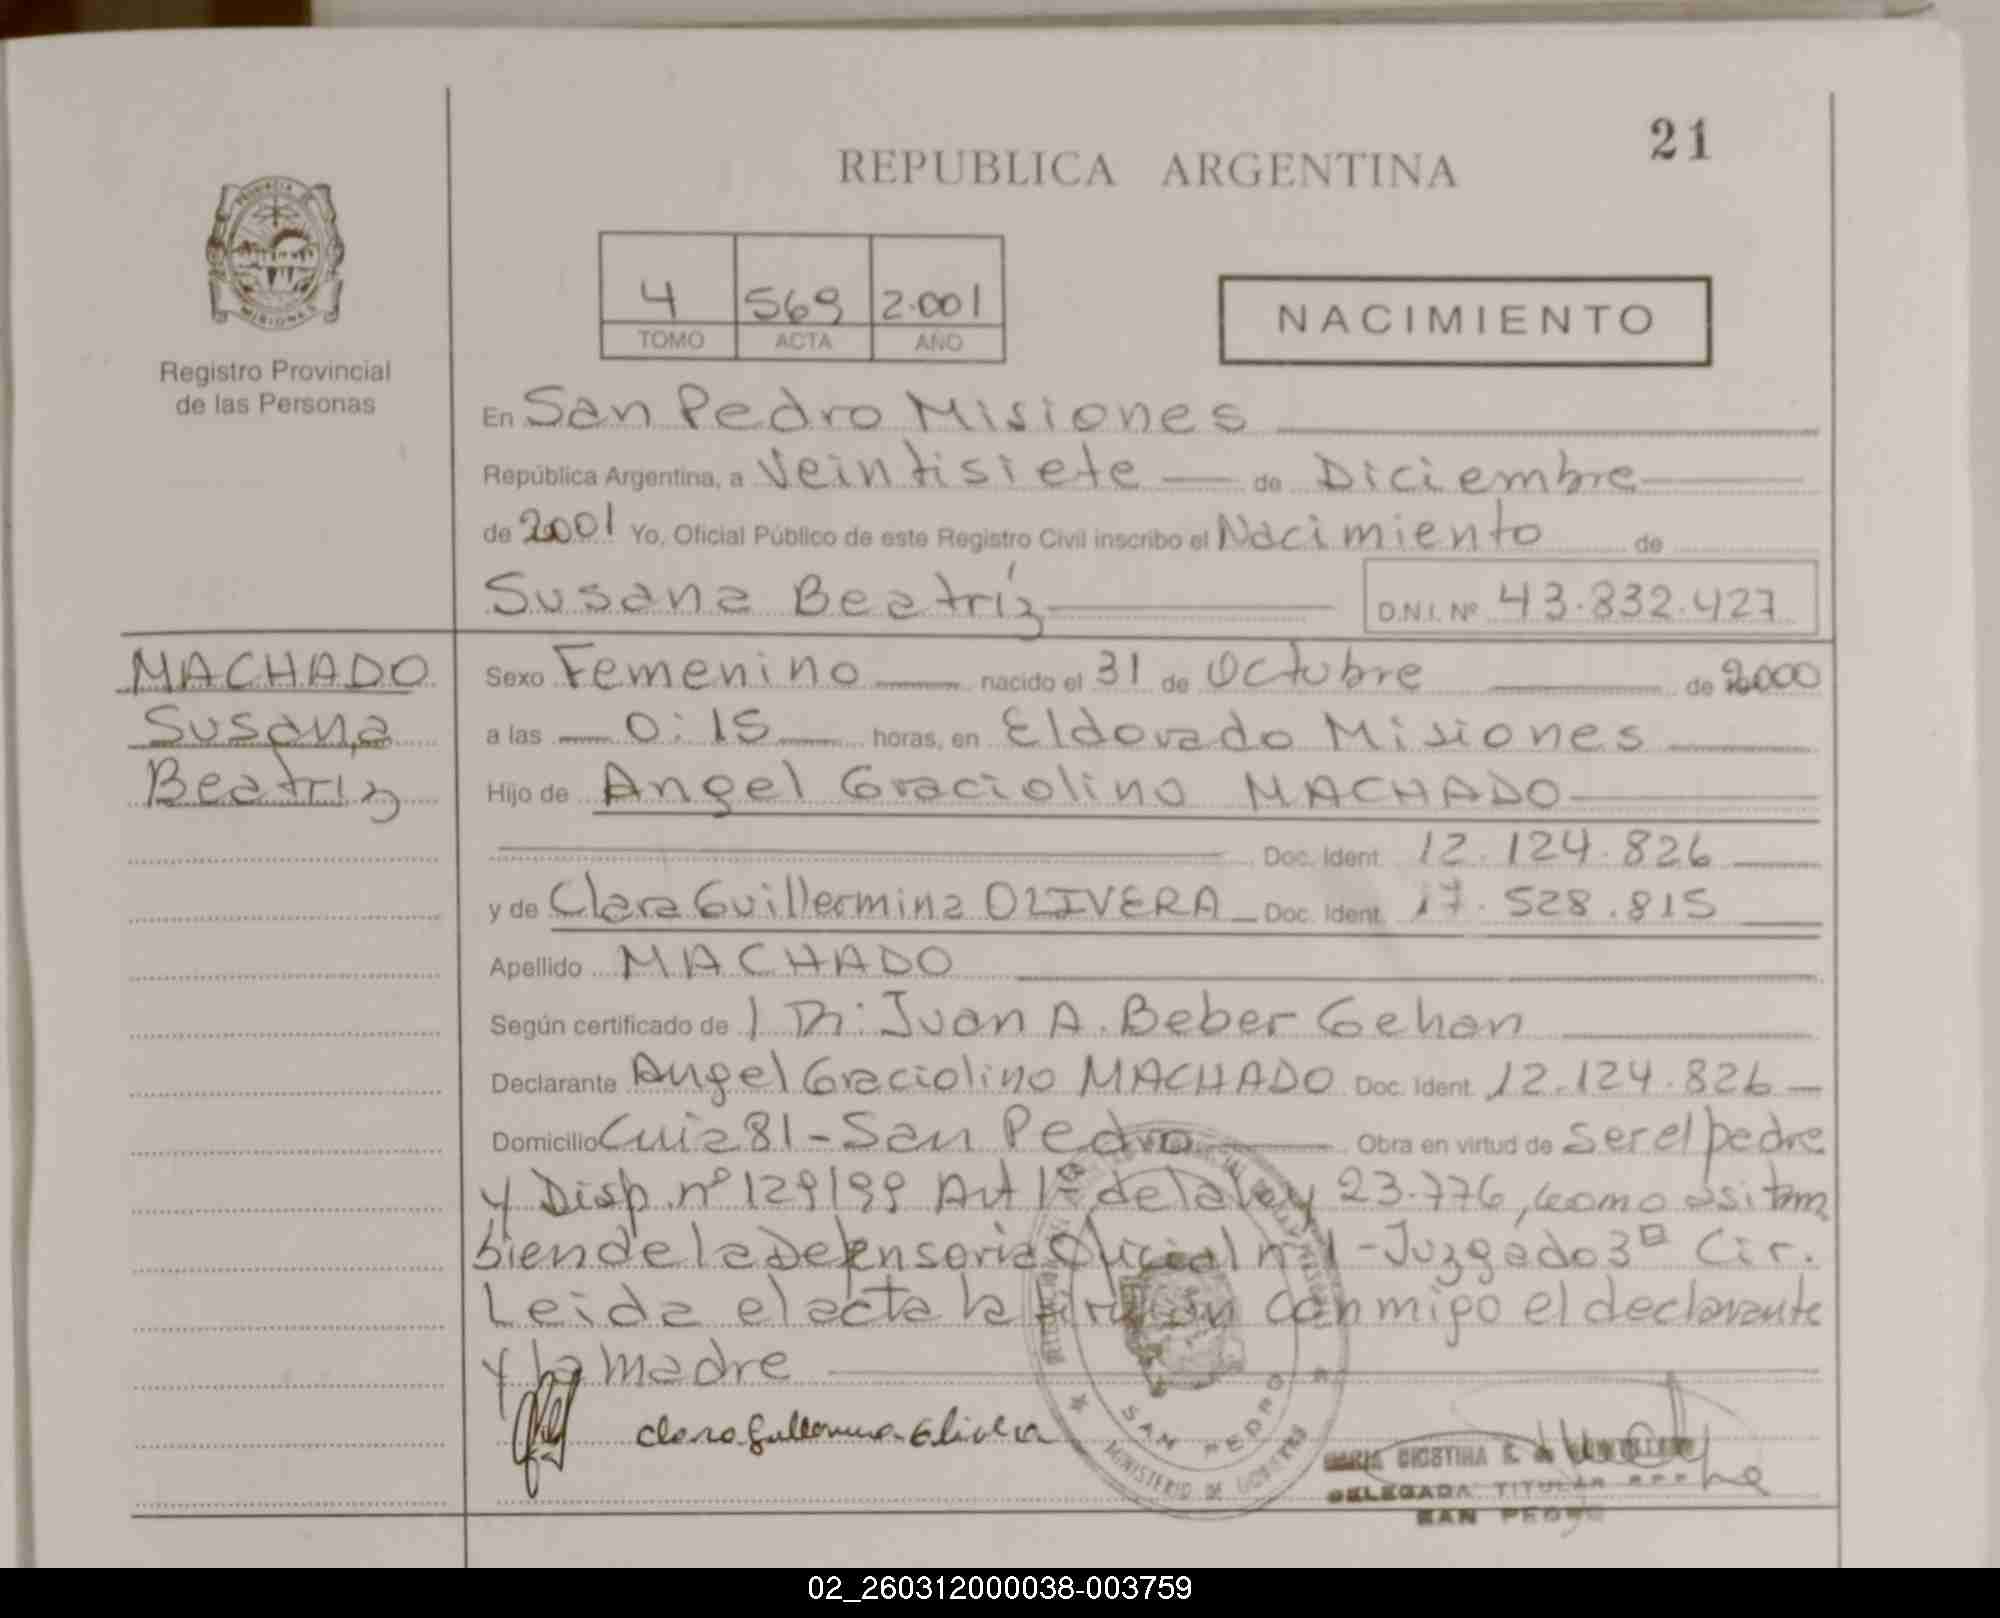 21
REPUBLICA ARGENTINA
PROVINCIA DE
MISIONES
Registro Provincial
de las Personas
4 569 2.001
TOMO ACTA AÑO
NACIMIENTO
En San Pedro Misiones
República Argentina, a Veintisiete de Diciembre
de 2001 Yo, Oficial Público de este Registro Civil inscribo el Nacimiento de
Susana Beatríz D.N.I. Nº 43.832.427
MACHADO
Susana
Beatriz
Sexo Femenino nacido el 31 de Octubre de 2000
a las 0:15 horas, en Eldorado Misiones
Hijo de Angel Graciolino MACHADO
Doc. Ident. 12.124.826
y de Clara Guillermina OLIVERA Doc. Ident. 17.528.815
Apellido MACHADO
Según certificado de Juan A. Beber Gehan
Declarante Angel Graciolino MACHADO Doc. Ident. 12.124.826
Domicilio Cuia 81 - San Pedro Obra en virtud de ser el padre
y Disp. nº 129/99 Art 1º de la ley 23.776, como asi tam
bien de la Defensoria Oficial nº 1 - Juzgado 3º Cir.
Leida el acta la firman conmigo el declarante
y la madre
SAN PEDRO
MINISTERIO DE GOBIERNO
MARIA CRISTINA
DELEGADA TITULAR
SAN PEDRO
02_260312000038-003759